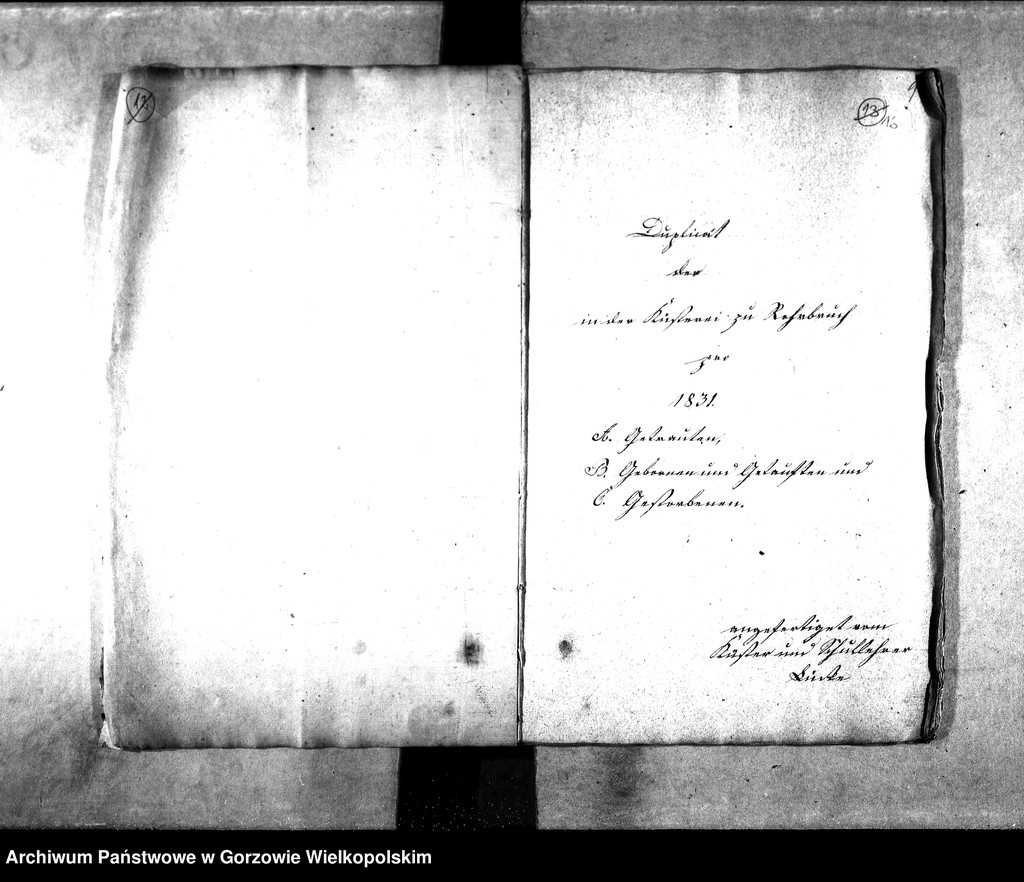 12
13
16
9
Duplicat
der
in der Küsterei zu Rohrbruch
pro
1831.
A. Getrauten,
B. Gebornen und Getauften und
C. Gestorbenen.
angefertiget vom
Küster und Schullehrer
Lücke
Archiwum Państwowe w Gorzowie Wielkopolskim